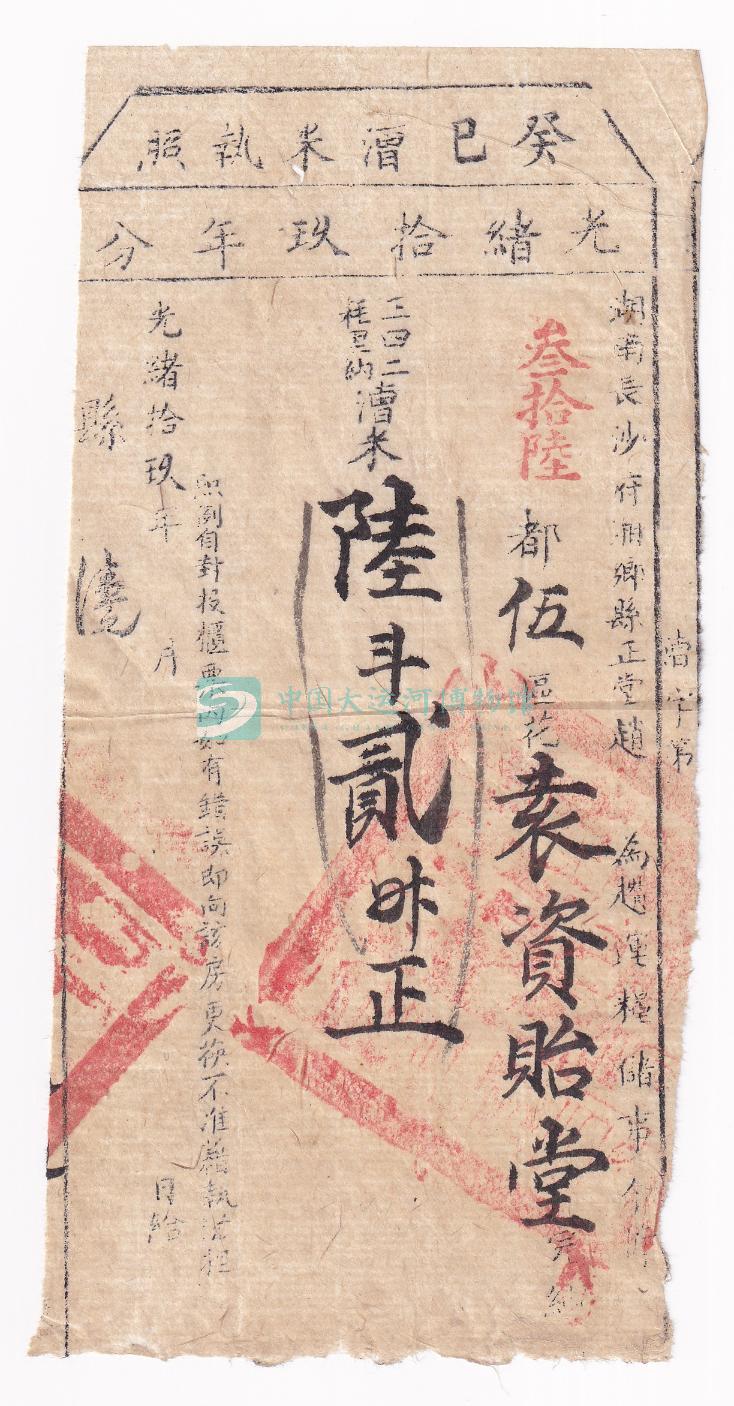 癸巳漕米執照
光緒拾玖年分
湖南長沙府湘鄉縣正堂趙 為趲運糧儲事今據
叁拾陸都伍區花萘資貽堂完納
正四二耗里納漕米陸斗貳升正
照例自封投櫃票內如有錯誤即向該房更換不准藉執混抗
光緒拾玖年 月 日給
縣
漕字第
中国大运河博物馆